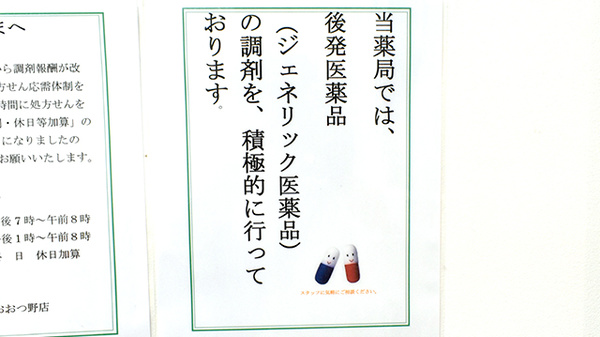 まへ
ら調剤報酬が改
方せん応需体制を
時間に処方せんを
・休日等加算」の
になりましたの
お願いいたします。
後7時～午前8時
後1時～午前8時
日 休日加算
おおつ野店
当薬局では、
後発医薬品
（ジェネリック医薬品）
の調剤を、積極的に行って
おります。
スタッフに気軽にご相談ください。